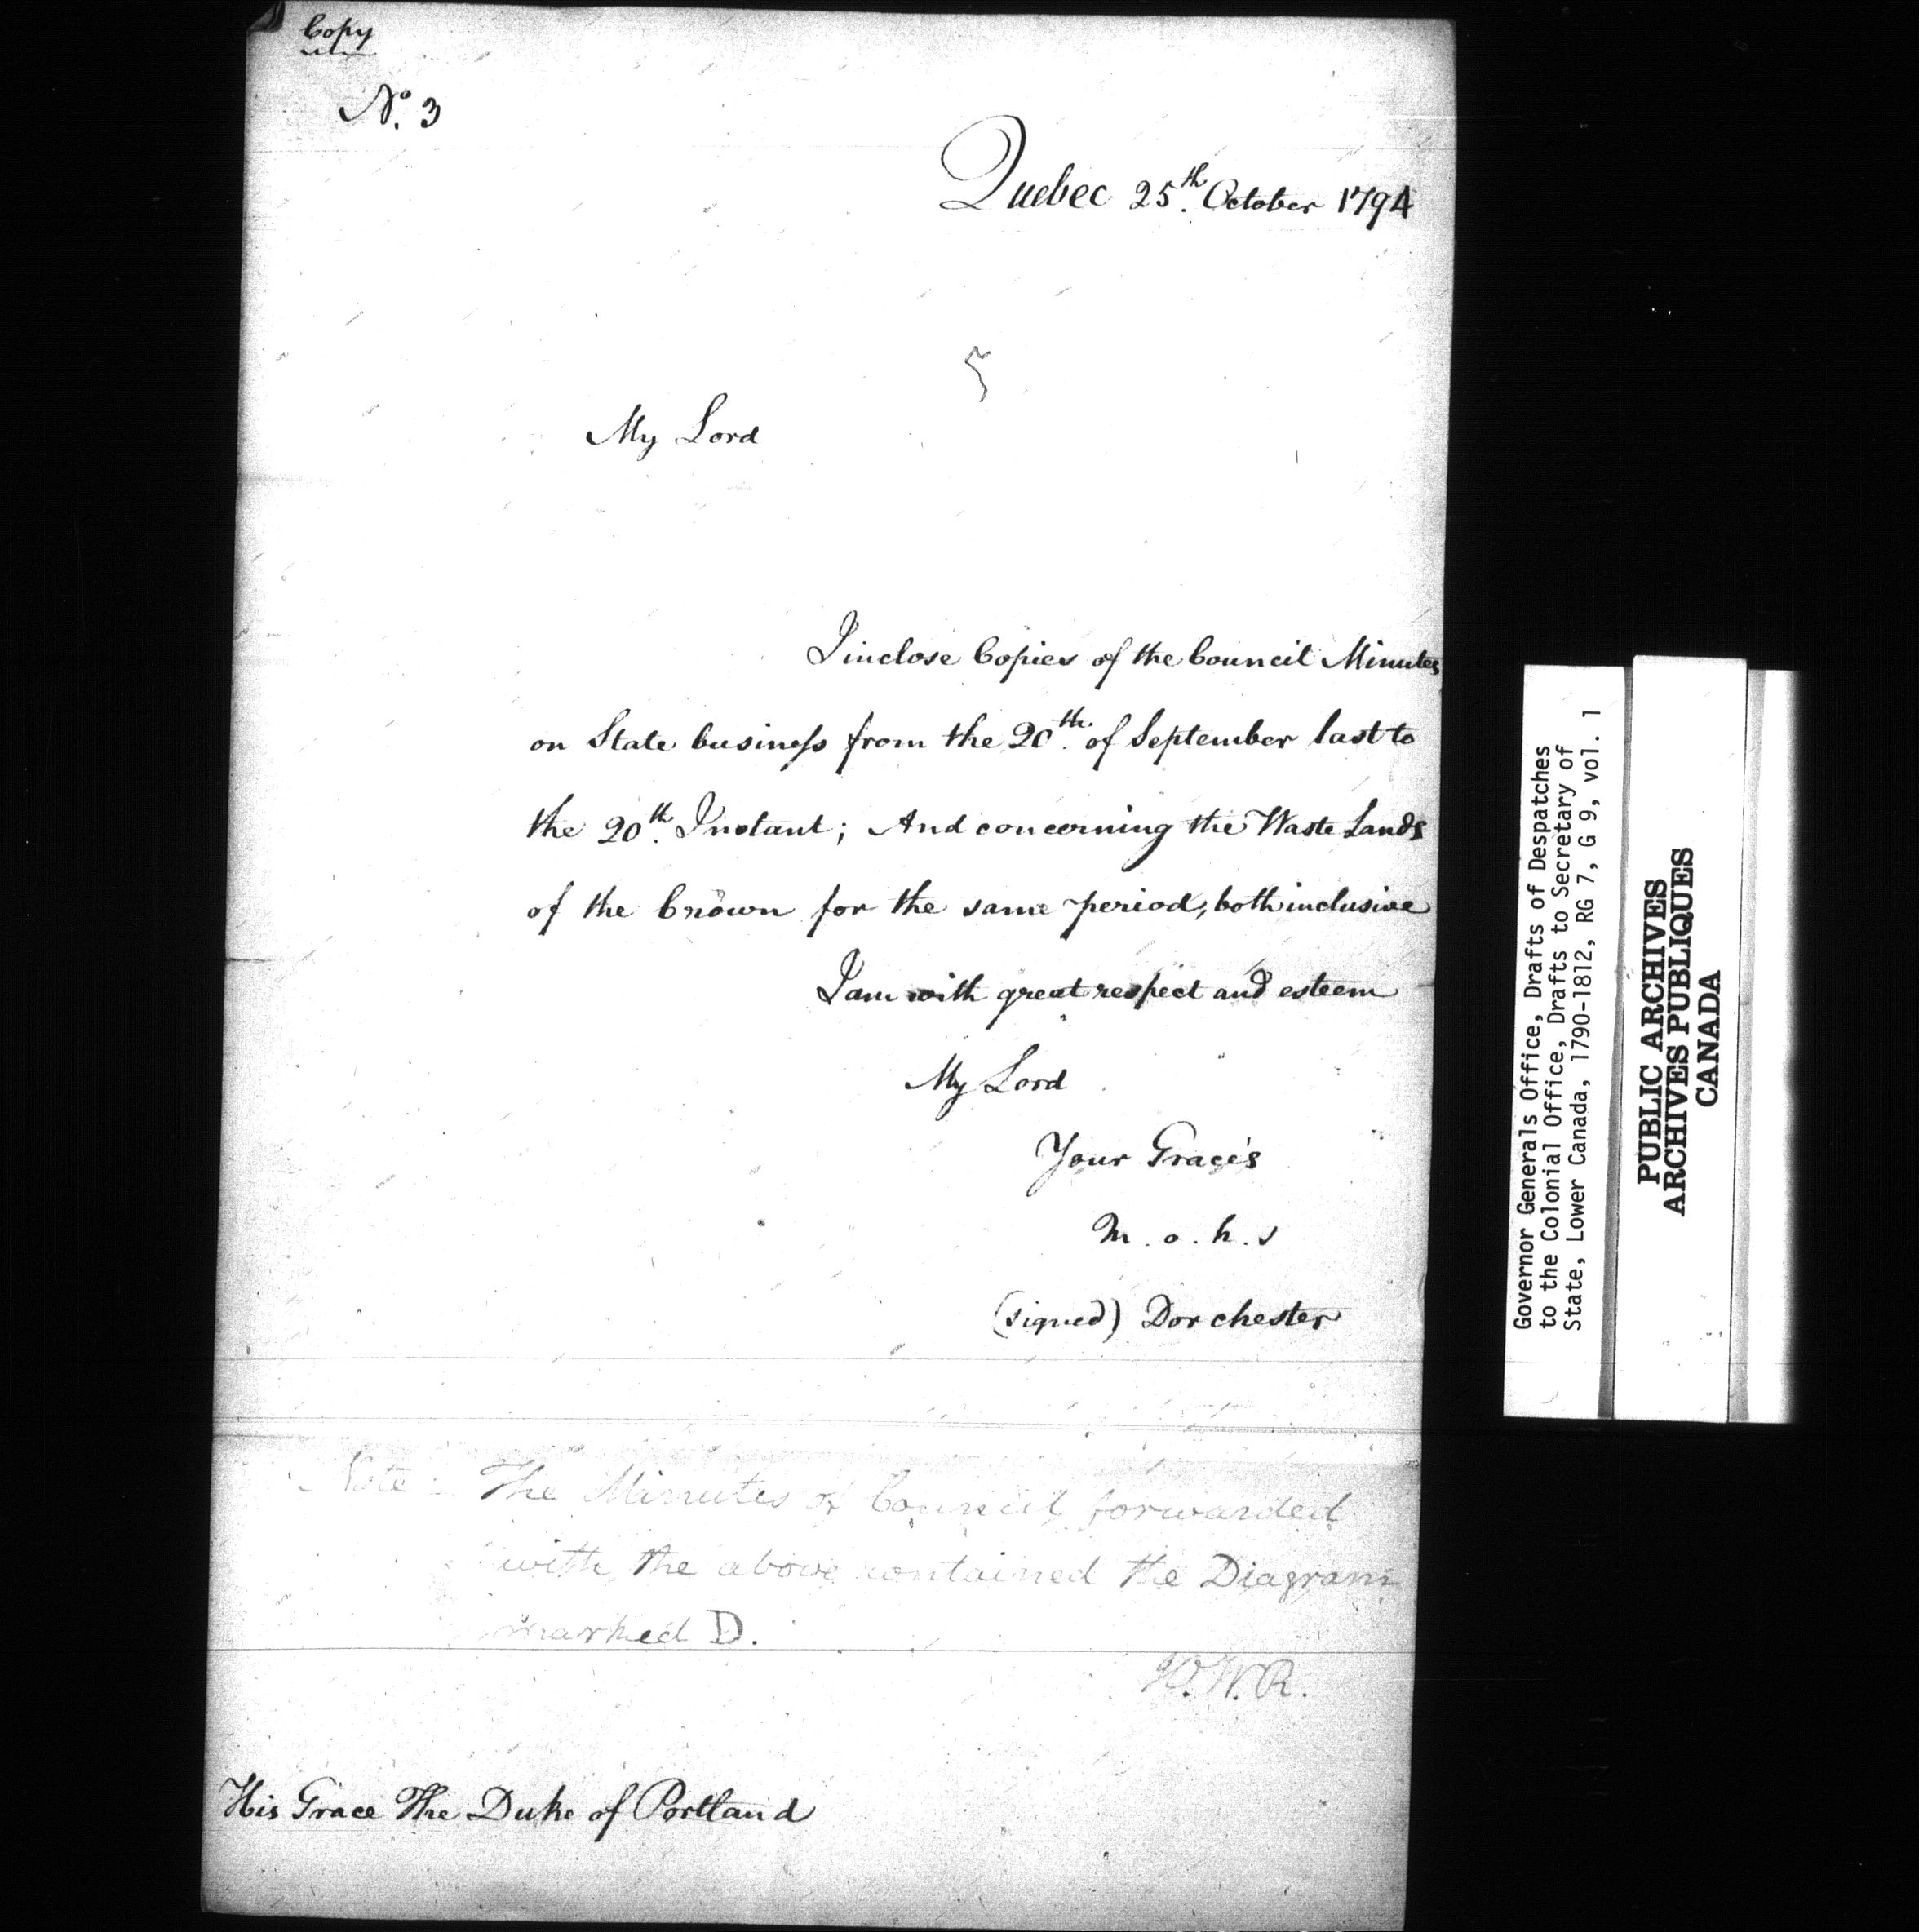 Copy
No. 3
Quebec 25th. October 1794
5
My Lord
I inclose Copies of the Council Minutes
on State business from the 20th. of September last to
the 20th. Instant; And concerning the Waste Lands
of the Crown for the same period, both inclusive
I am with great respect and esteem
My Lord
Your Grace's
M. o. h. s
(signed) Dorchester
Note: The Minutes of Council forwarded
with the above contained the Diagram
marked D.
W.R.
His Grace The Duke of Portland
Governor Generals Office, Drafts of Despatches
to the Colonial Office, Drafts to Secretary of
State, Lower Canada, 1790-1812, RG 7, G 9, vol. 1
PUBLIC ARCHIVES
ARCHIVES PUBLIQUES
CANADA